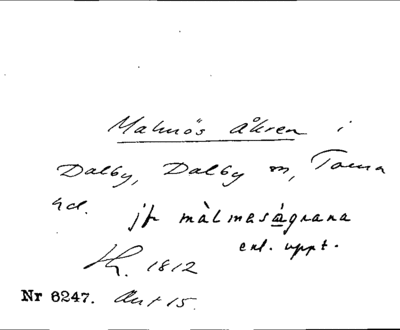 Malmös åkren i
Dalby, Dalby sn, Torna
hd. jfr màlmaságrana
enl. uppt.
Lh. 1812
Nr 6247. Akt 15.